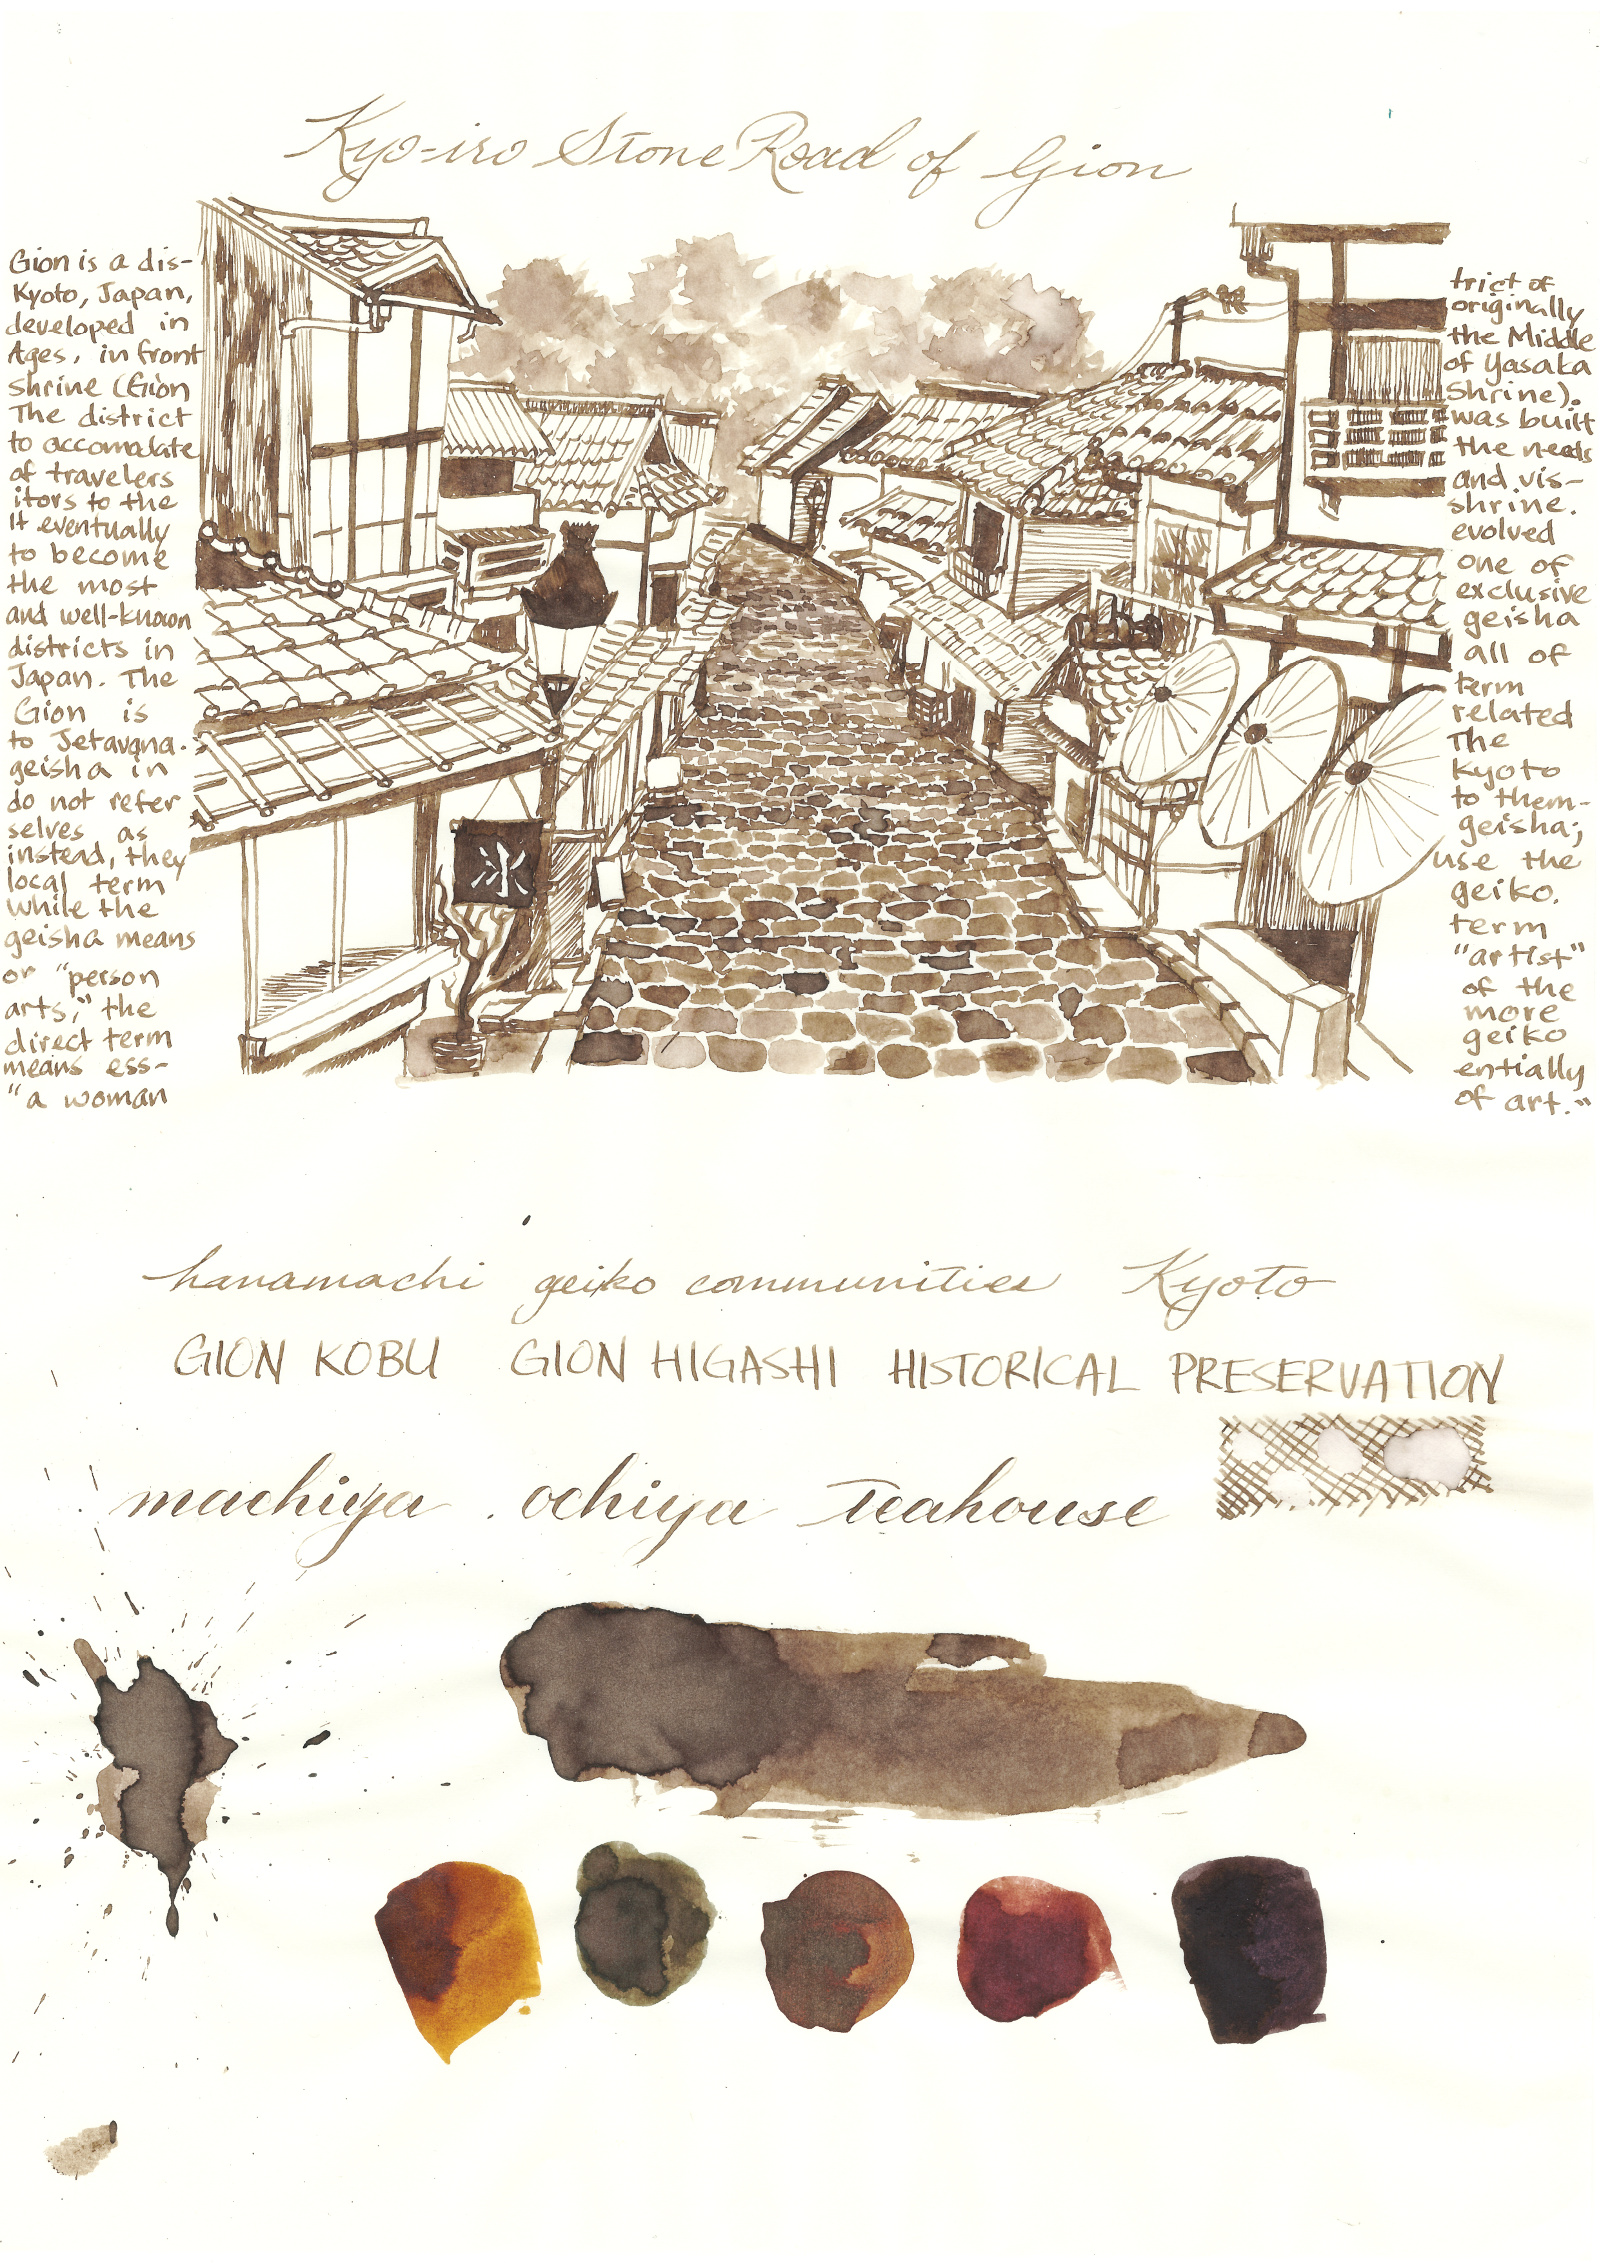 Kyo-iro Stone Road of Gion
Gion is a dis- trict of
Kyoto, Japan, originally
developed in the Middle
Ages, in front of Yasaka
shrine (Gion Shrine).
The district was built
to accomodate the needs
of travelers and vis-
itors to the shrine.
It eventually evolved
to become one of
the most exclusive
and well-known geisha
districts in all of
Japan. The term
Gion is related
to Jetavana. The
geisha in Kyoto
do not refer to them-
selves as geisha;
instead, they use the
local term geiko.
While the term
geisha means "artist"
or "person of the
arts," the more
direct term geiko
means ess- entially
"a woman of art."
氷
hanamachi geiko communities Kyoto
GION KOBU GION HIGASHI HISTORICAL PRESERVATION
machiya ochiya teahouse